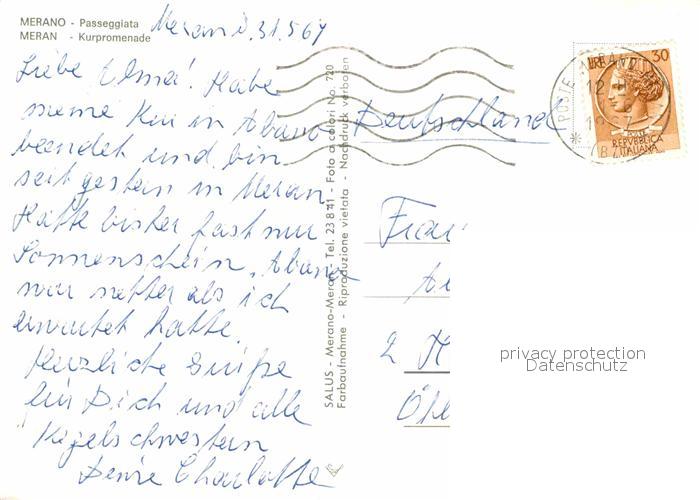 MERANO - Passeggiata
MERAN - Kurpromenade
Meran d. 31.5 67
Liebe Elma! Habe
meine Kur in Abano
beendet und bin
seit gestern in Meran
Hatte bisher fast nur
Sonnenschein, Abano
war netter als ich
erwartet hatte.
Herzliche Grüße
für Dich und alle
Kegelschwestern
Deine Charlotte
SALUS - Merano-Meran - Tel. 23 8 41 - Foto a colori No. 720
Farbaufnahme - Riproduzione vietata - Nachdruck verboten
Deutschland
POSTE MERANO
12
(BZ)
LIRE 30
REPVBBLICA
ITALIANA
Frau
2 H
privacy protection
Datenschutz